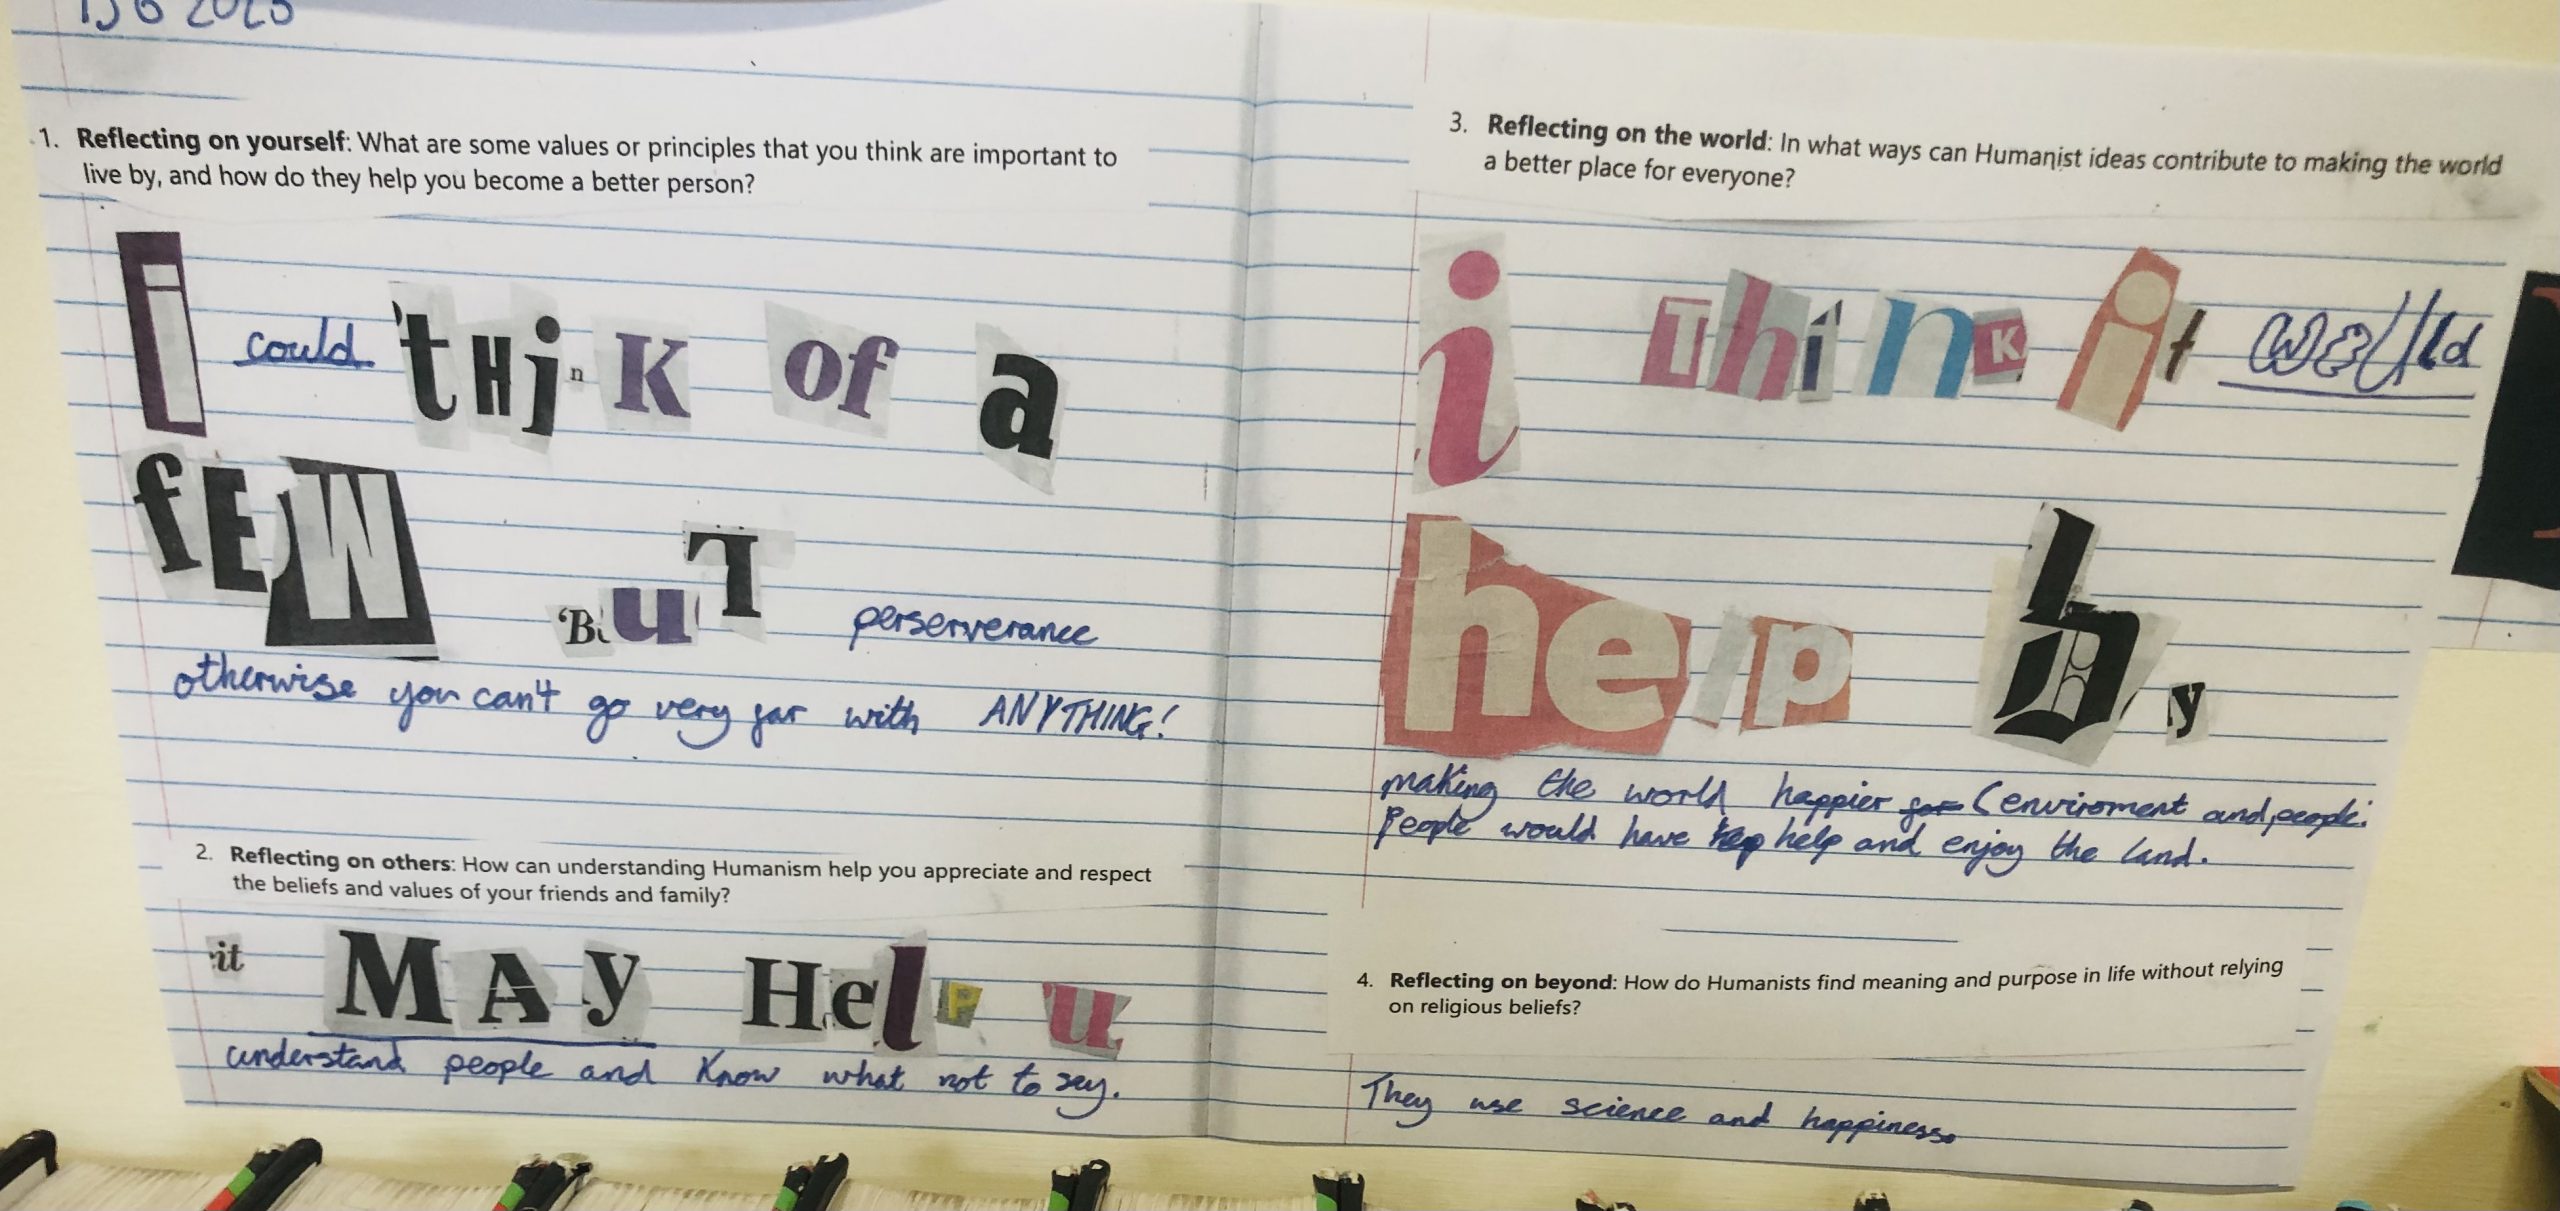 1. Reflecting on yourself: What are some values or principles that you think are important to
live by, and how do they help you become a better person?
i could tHinK of a
fEW BuT perserverance
otherwise you can't go very far with ANYTHING!
2. Reflecting on others: How can understanding Humanism help you appreciate and respect
the beliefs and values of your friends and family?
it MAy HelP u
understand people and Know what not to say.
3. Reflecting on the world: In what ways can Humanist ideas contribute to making the world
a better place for everyone?
i ThinK it would
help by
making the world happier for (enviroment and people.
People would have help and enjoy the land.
4. Reflecting on beyond: How do Humanists find meaning and purpose in life without relying
on religious beliefs?
They use science and happiness.